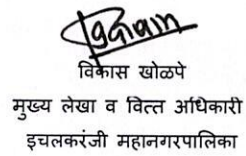 विकास खोळपे
मुख्य लेखा व वित्त अधिकारी
इचलकरंजी महानगरपालिका